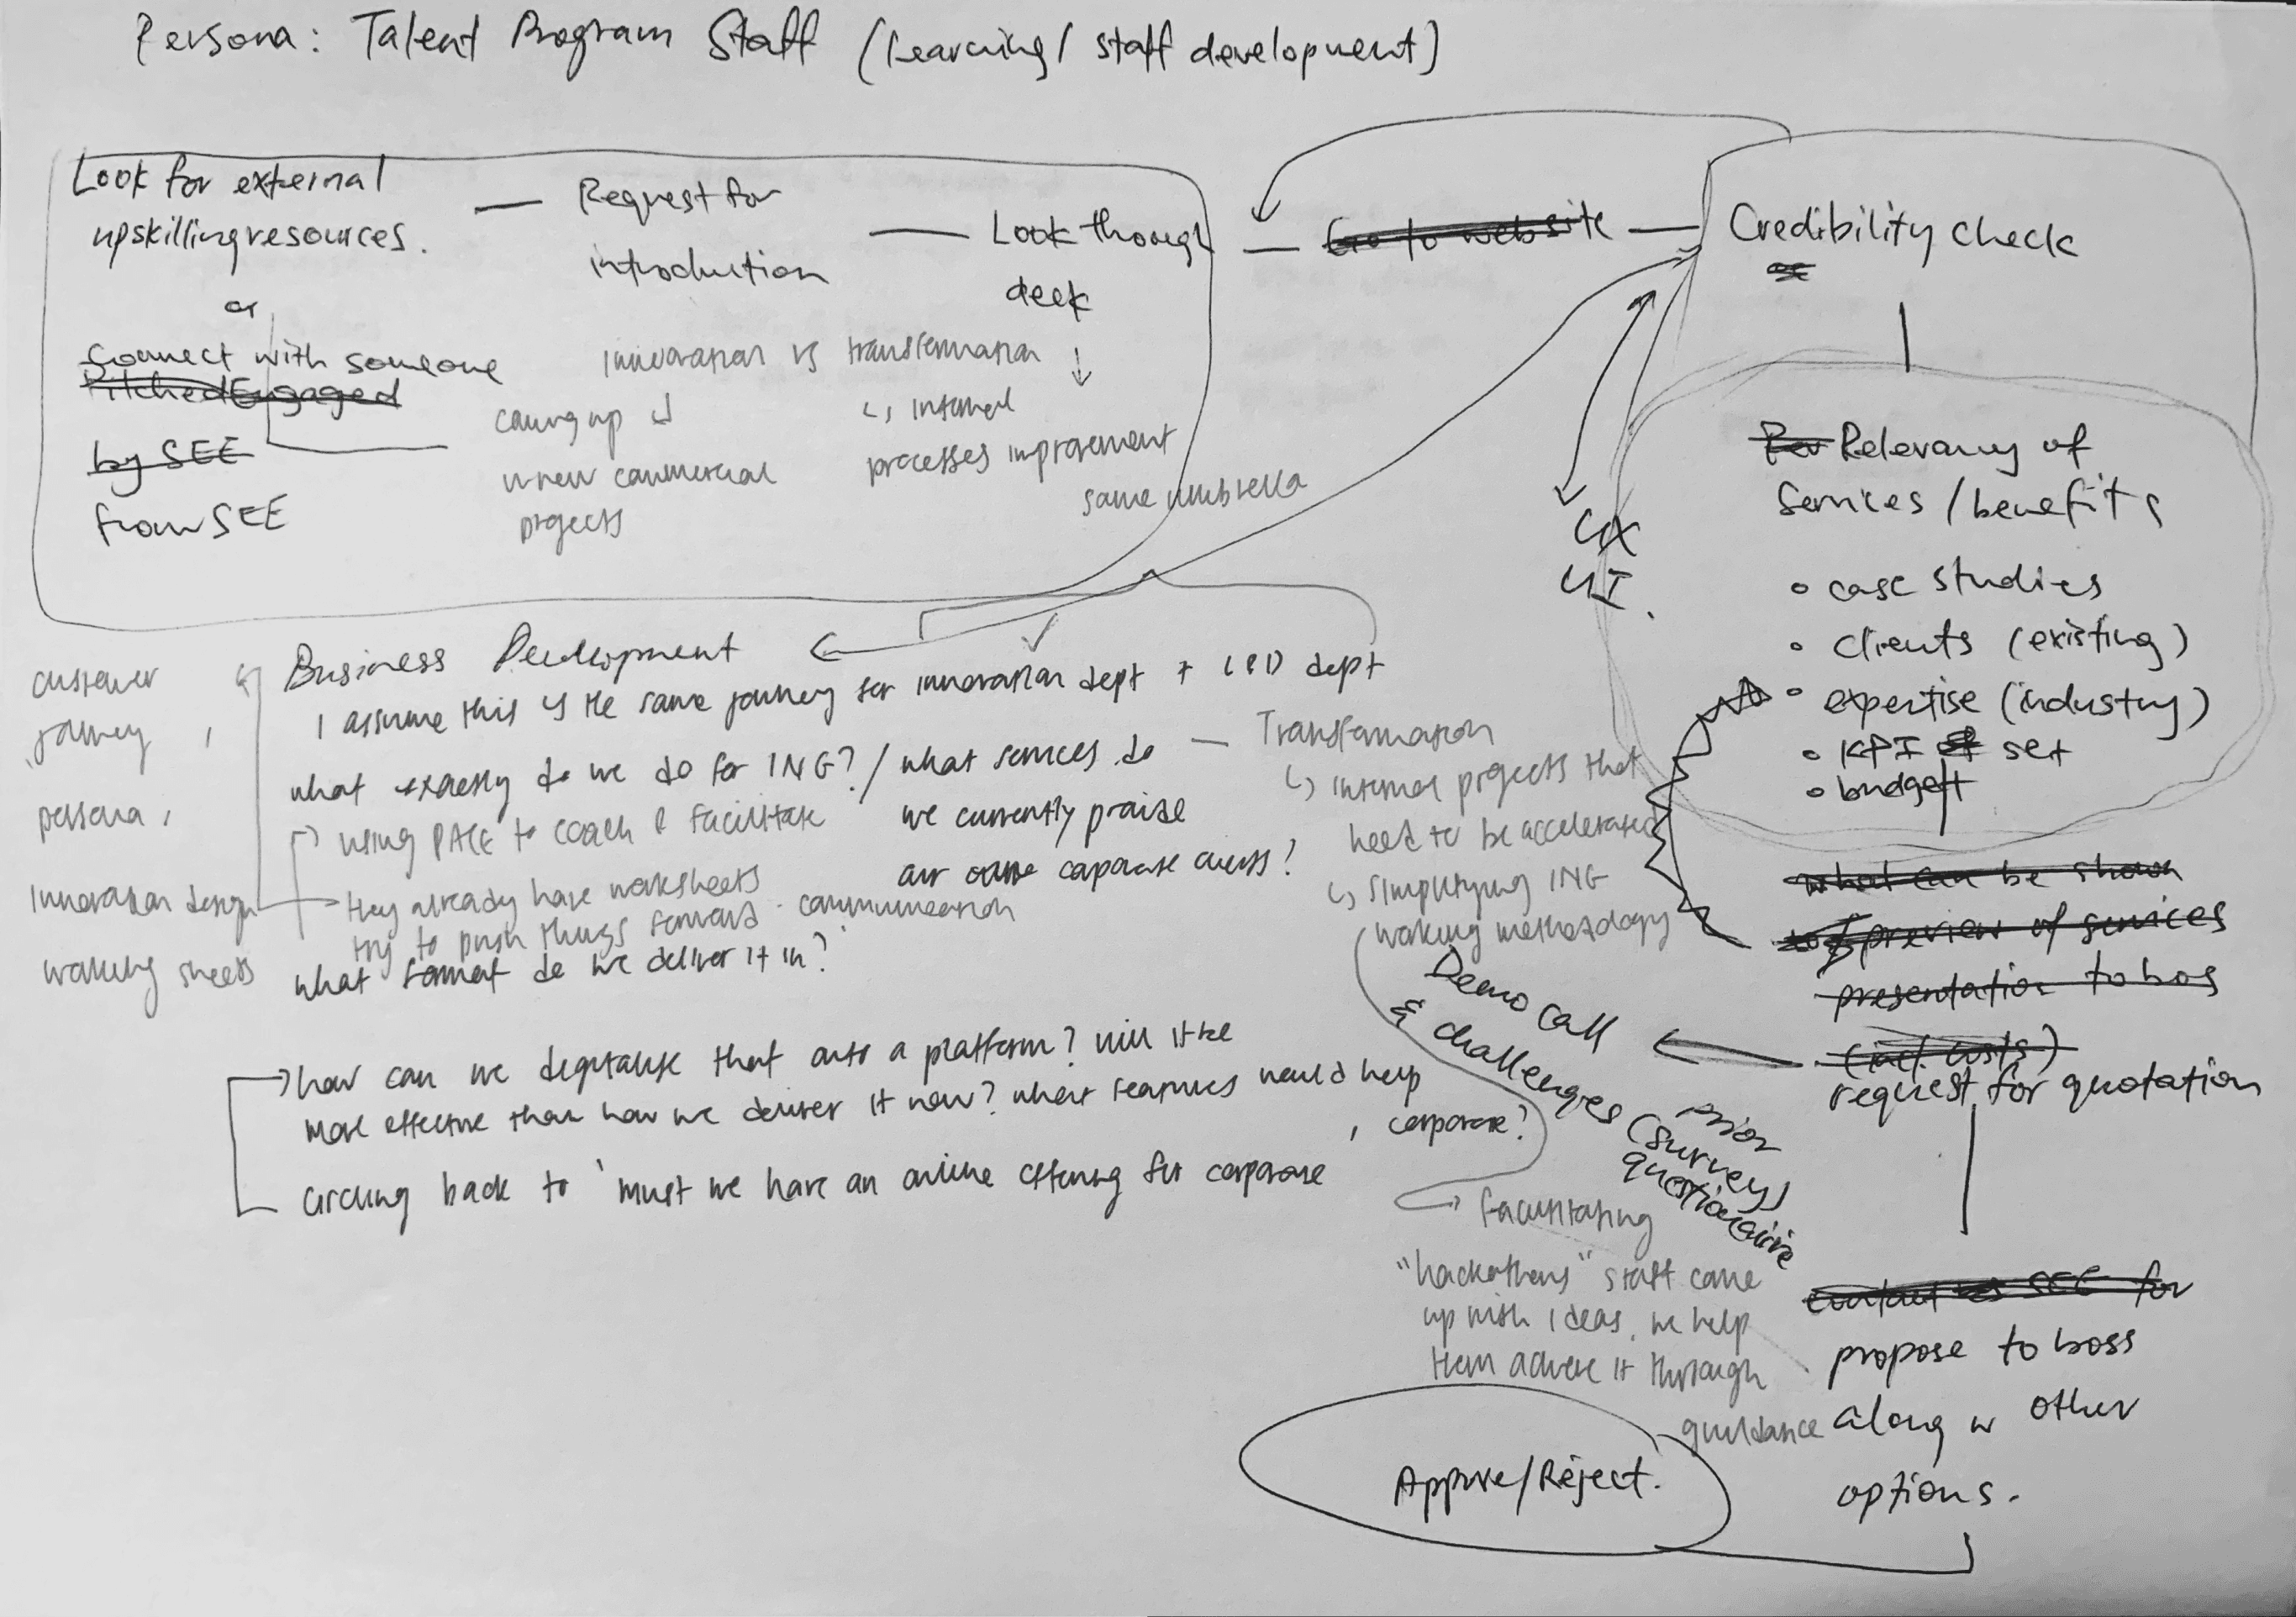 Persona: Talent Program Staff (learning/ staff development)
Look for external
upskilling resources.
or
Connect with someone
Pitched Engaged
by SEE
from SEE
Request for
introduction
Look though
deck
Go to website
Credibility check
innovation vs transformation
coming up
w new commercial
projects
internal
processes improvement
same umbrella
UX
UI.
Relevancy of
Services / benefits
• case studies
• clients (existing)
• expertise (industry)
• KPI set
• budget
what can be shown
preview of services
presentation to bos
(incl. costs)
request for quotation
Demo Call
& challenges
prior
(survey)
questionaire
contact SEE for
propose to boss
along w other
options.
Approve/Reject.
Business Development
I assume this is the same journey for innovation dept + L&D dept
what exactly do we do for ING? / what services do
we currently
our corporate clients?
using PACE to coach & facilitate
they already have worksheets
try to push things forward. communication
what format do we deliver it in?
customer
journey,
persona,
innovation design
working sheets
Transformation
internal projects that
need to be accelerated
simplifying ING
working methodology
how can we digitalise that onto a platform? will it be
more effective than how we deliver it now? what features would help
corporate?
circling back to 'must we have an online offering for corporate'
facilitating
"hackathons" staff come
up with ideas, we help
them achieve it through
guidance